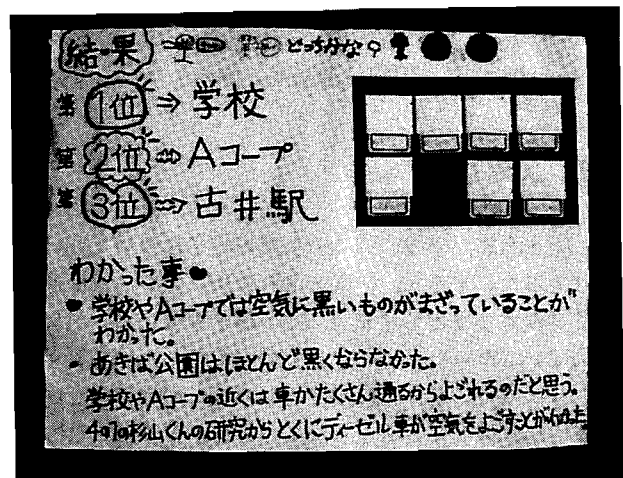 結果 どっちかな?
第1位 ⇒ 学校
第2位 ⇒ Aコープ
第3位 ⇒ 古井駅
わかった事
● 学校やAコープでは空気に黒いものがまざっていることが
わかった。
・あきば公園はほとんど黒くならなかった。
学校やAコープの近くは車がたくさん通るからよごれるのだと思う。
4の1の杉山くんの研究からとくにディーゼル車が空気をよごすことが